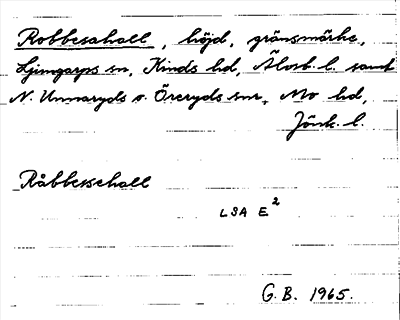 Robbesahall, höjd, gränsmärke,
Ljungarps sn, Kinds hd, Älvsb. l. samt
N. Unnaryds o. Öreryds snr, Mo hd,
Jönk. l.
Råbbesehall
LSA E²
G.B. 1965.